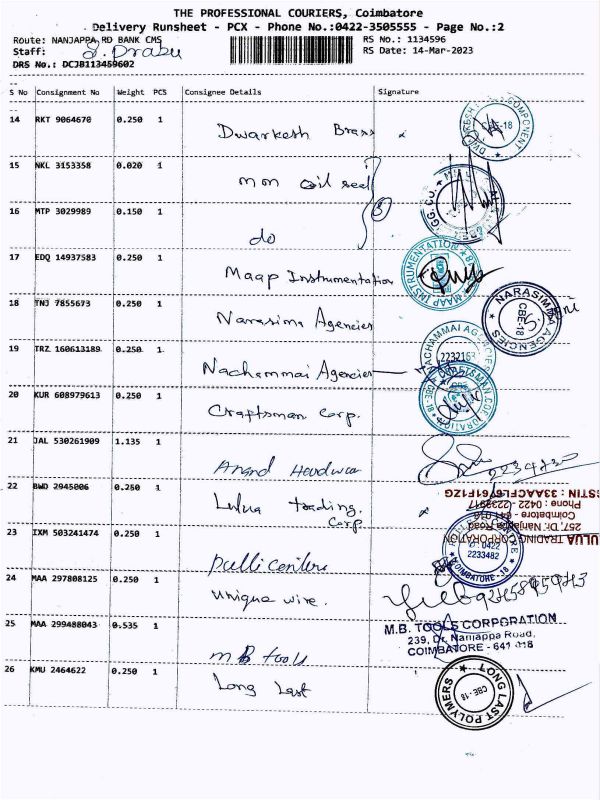 THE PROFESSIONAL COURIERS, Coimbatore
Delivery Runsheet - PCX - Phone No.:0422-3505555 - Page No.:2
Route: NANJAPPA RD BANK CMS RS No.: 1134596
Staff: S. Prabu RS Date: 14-Mar-2023
DRS No.: DCJB113459602
S No Consignment No Weight PCS Consignee Details Signature
14 RKT 9064670 0.250 1 Dwarkesh Brass
CBE-18
15 NKL 3153358 0.020 1 mon oil seal
16 MTP 3029989 0.150 1 do
17 EDQ 14937583 0.250 1 Maap Instrumentation
MAAP INSTRUMENTATION
18 TNJ 7855673 0.250 1 Narasima Agencies
NARASIMMA AGENCIES CBE-18
19 TRZ 160613189 0.250 1 Nachammai Agencies
NACHAMMAI AGENCIES 2232163
20 KUR 608979613 0.250 1 Craftsman Corp.
21 JAL 530261909 1.135 1 Anand Hardware
22 BWD 2945006 0.250 1 Lulua trading.
Corp.
GSTIN : 33AACFL6761F1ZG
Coimbatore - 641 018
257, Dr. Nanjappa Road
LULUA TRADING CORPORATION
23 IXM 503241474 0.250 1
0422
2233482
COIMBATORE-18
24 MAA 297808125 0.250 1 unique wire.
25 MAA 299488043 0.535 1 MB tools
M.B. TOOLS CORPORATION
239, Dr. Nanjappa Road,
COIMBATORE - 641 018
26 KMU 2464622 0.250 1 Long Last
LONG LAST POLYMERS CBE-18